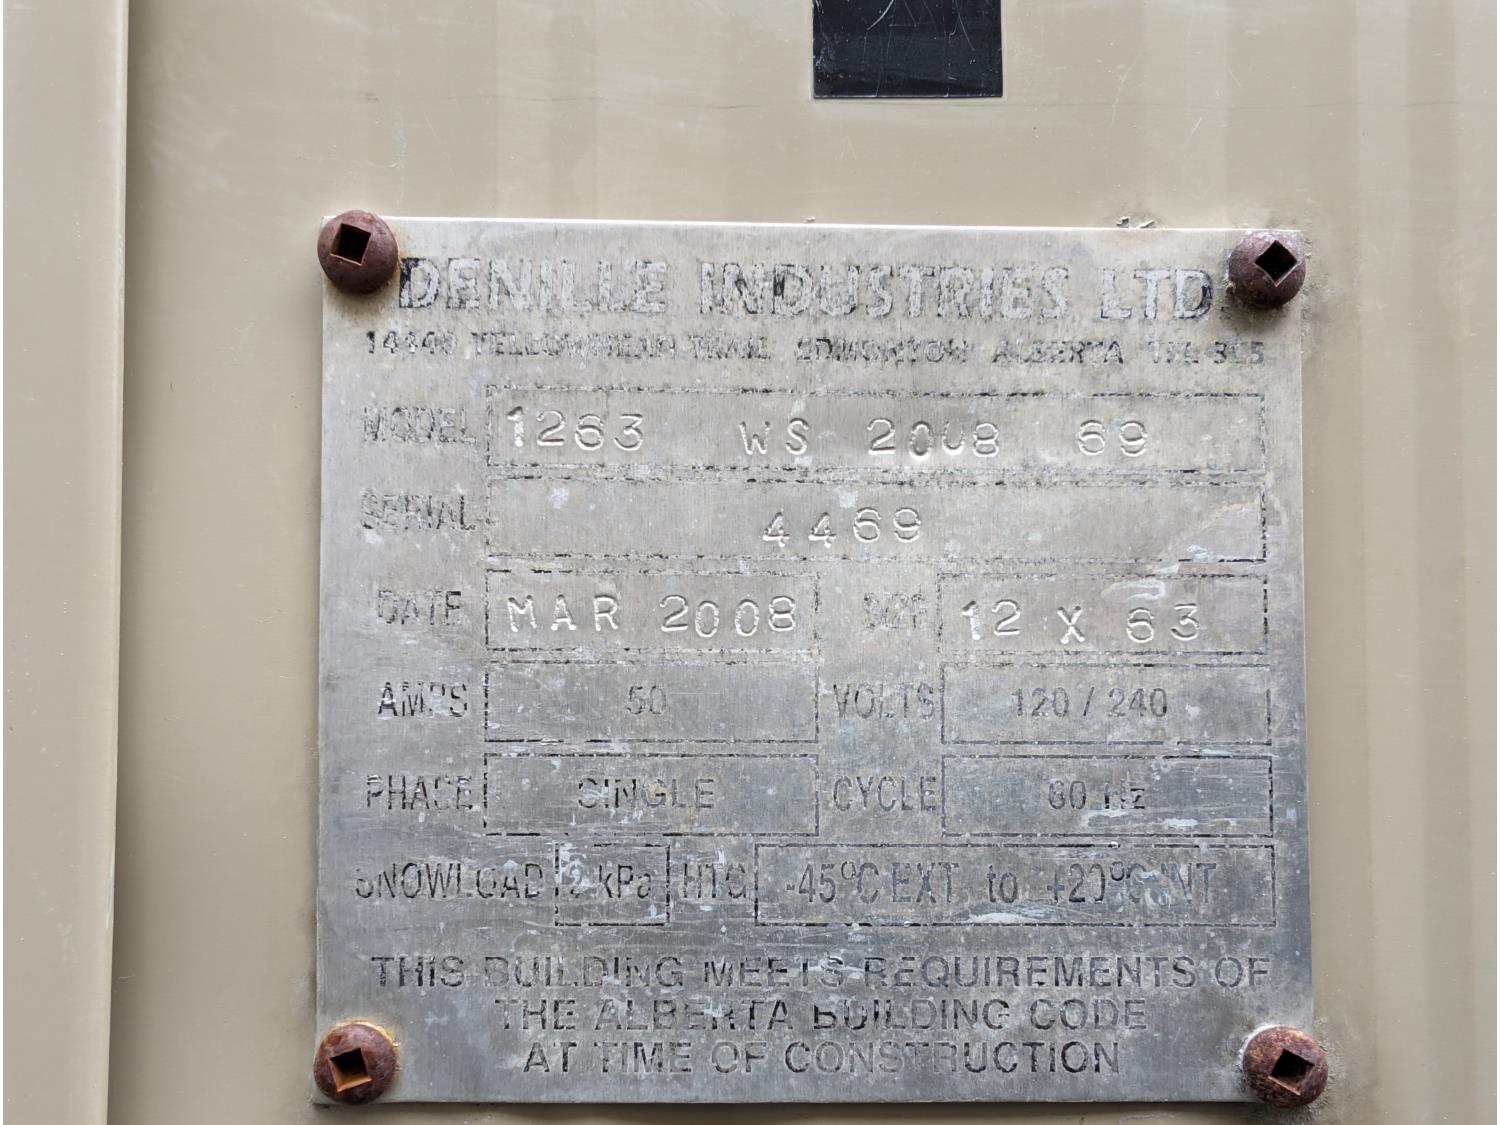 DENILLE INDUSTRIES LTD.
14440 YELLOWHEAD TRAIL EDMONTON ALBERTA T5L 3C5
MODEL 1263 WS 2008 69
SERIAL 4469
DATE MAR 2008 SIZE 12 X 63
AMPS 50 VOLTS 120 / 240
PHASE SINGLE CYCLE 60 Hz
SNOWLOAD 2 kPa HTG -45°C EXT to +20°C INT
THIS BUILDING MEETS REQUIREMENTS OF
THE ALBERTA BUILDING CODE
AT TIME OF CONSTRUCTION